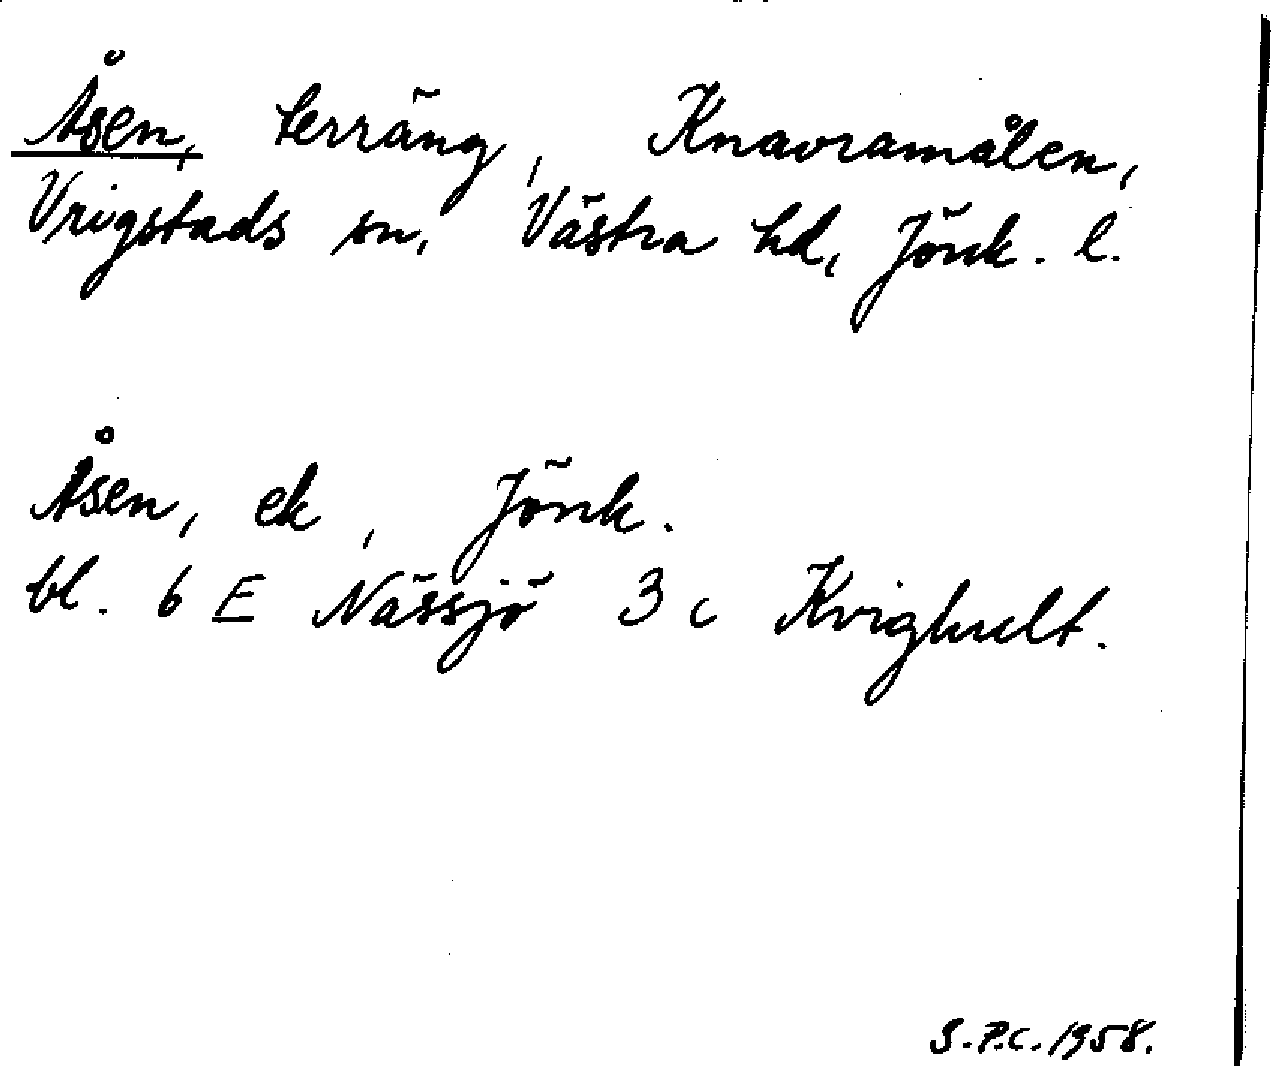 Åsen, terräng, Knavramålen,
Vrigstads sn, Västra hd, Jönk. l.
Åsen, ek, Jönk.
bl. 6 E Nässjö 3 c Kvighult.
S.P.C. 1958.